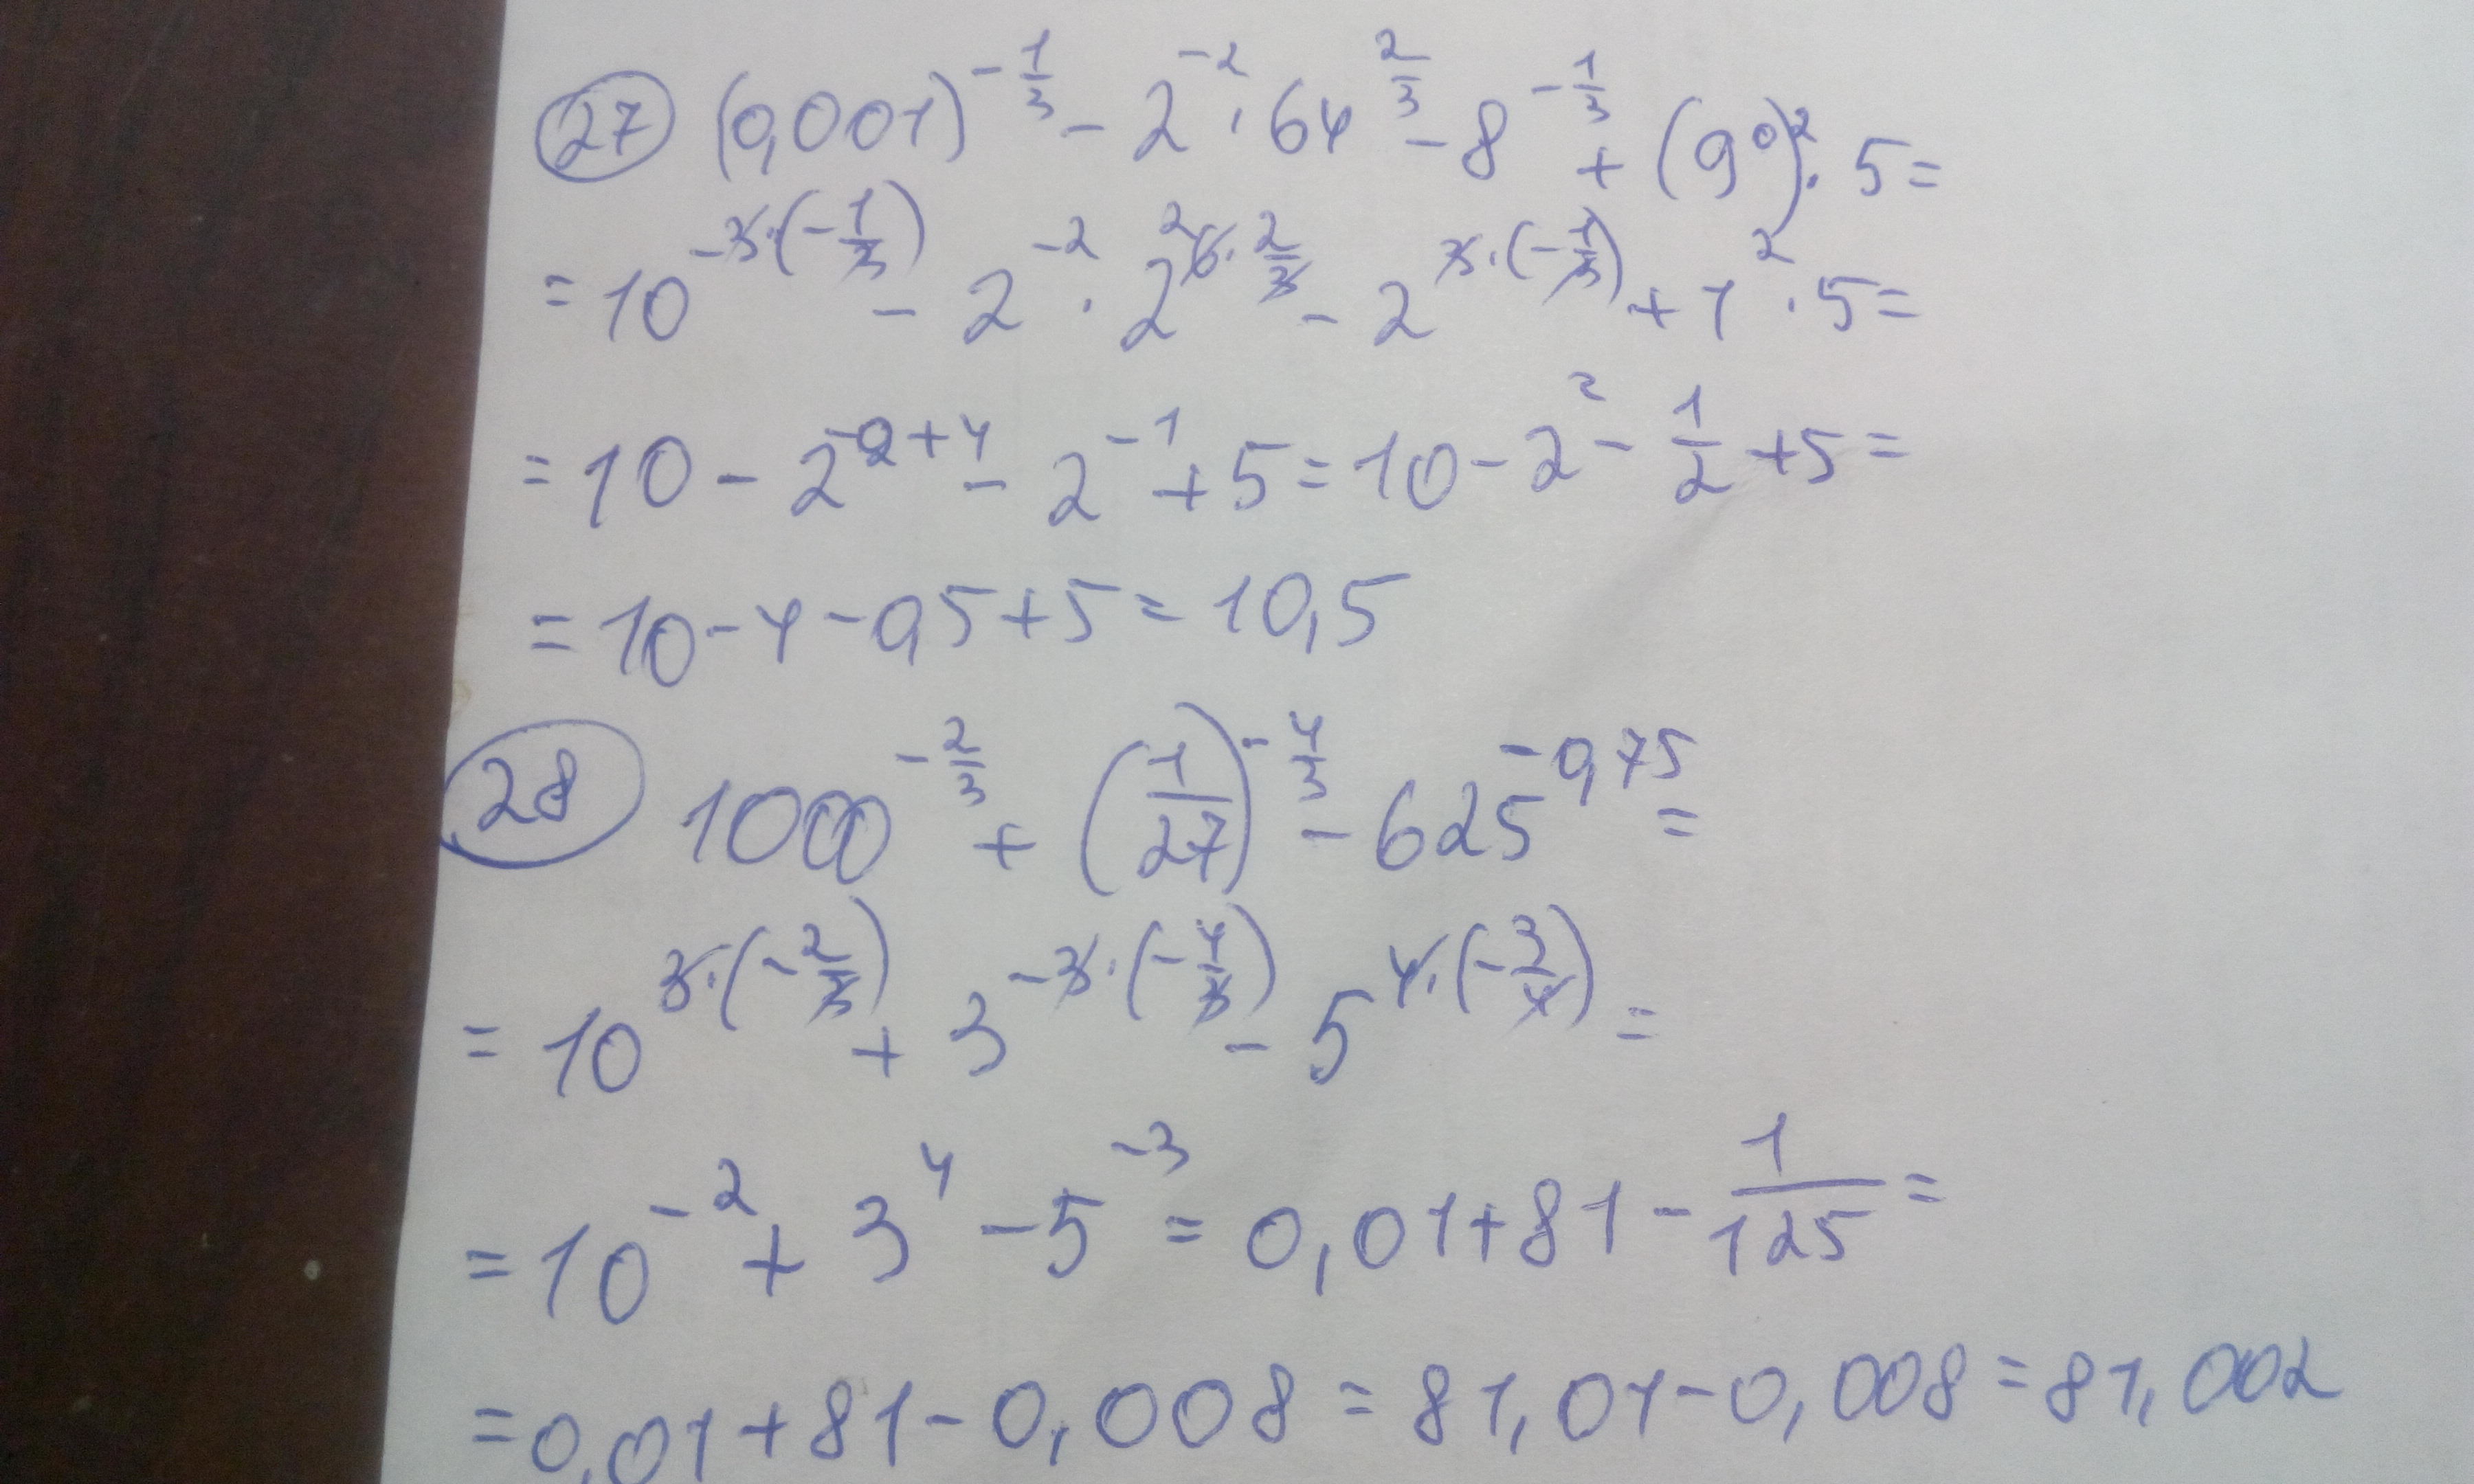 27 (0,001)^(-1/3) - 2^(-2) · 64^(2/3) - 8^(-1/3) + (9^0)^2 · 5 =
= 10^(-3·(-1/3)) - 2^(-2) · 2^(6·2/3) 2 - 2^(3·(-1/3)) + 1^2 · 5 =
= 10 - 2^(-2+4) - 2^(-1) + 5 = 10 - 2^2 - 1/2 + 5 =
= 10 - 4 - 0,5 + 5 = 10,5
28 1000^(-2/3) + (1/27)^(-4/3) - 625^(-0,75) =
= 10^(3·(-2/3)) + 3^(-3·(-4/3)) - 5^(4·(-3/4)) =
= 10^(-2) + 3^4 - 5^(-3) = 0,01 + 81 - 1/125 =
= 0,01 + 81 - 0,008 = 81,01 - 0,008 = 81,002